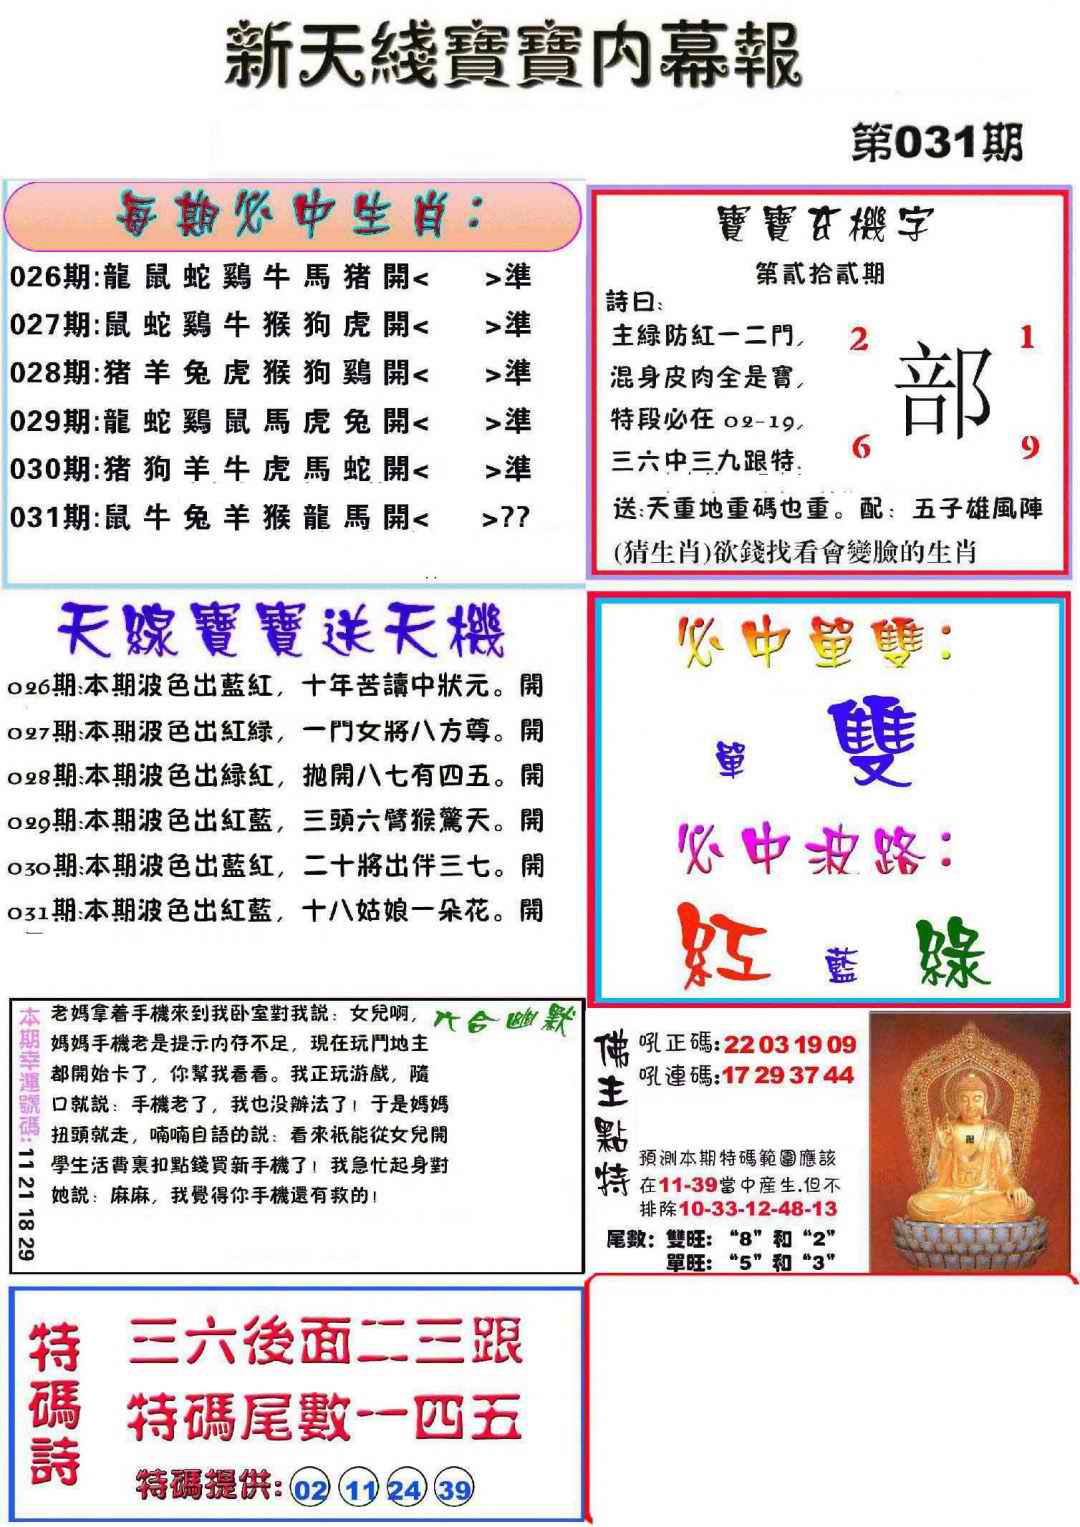 新天綫寶寶内幕報
第031期
每期必中生肖：
026期:龍鼠蛇鷄牛馬猪開<　　>準
027期:鼠蛇鷄牛猴狗虎開<　　>準
028期:猪羊兔虎猴狗鷄開<　　>準
029期:龍蛇鷄鼠馬虎兔開<　　>準
030期:猪狗羊牛虎馬蛇開<　　>準
031期:鼠牛兔羊猴龍馬開<　　>??
寶寶玄機字
第貳拾貳期
詩曰:
主緑防紅一二門,
混身皮肉全是寶,
特段必在 02-19,
三六中三九跟特.
2 1
部
6 9
送:天重地重碼也重。配：五子雄風陣
(猜生肖)欲錢找看會變臉的生肖
天線寶寶送天機
026期:本期波色出藍紅，十年苦讀中狀元。開
027期:本期波色出紅緑，一門女將八方尊。開
028期:本期波色出緑紅，抛開八七有四五。開
029期:本期波色出紅藍，三頭六臂猴驚天。開
030期:本期波色出藍紅，二十將出伴三七。開
031期:本期波色出紅藍，十八姑娘一朵花。開
必中單雙：
單 雙
必中波路：
紅 藍 綠
本期幸運號碼:11 21 18 29
六合幽默
老媽拿着手機來到我卧室對我説：女兒啊，
媽媽手機老是提示内存不足，現在玩鬥地主
都開始卡了，你幫我看看。我正玩游戲，隨
口就説：手機老了，我也没辦法了！于是媽媽
扭頭就走，喃喃自語的説：看來祇能從女兒開
學生活費裏扣點錢買新手機了！我急忙起身對
她説：麻麻，我覺得你手機還有救的！
佛主點特
吼正碼:22 03 19 09
吼連碼:17 29 37 44
預測本期特碼範圍應該
在11-39當中産生.但不
排除10-33-12-48-13
尾數：雙旺：“8”和“2”
單旺：“5”和“3”
特碼詩
三六後面二三跟
特碼尾數一四五
特碼提供: 02 11 24 39